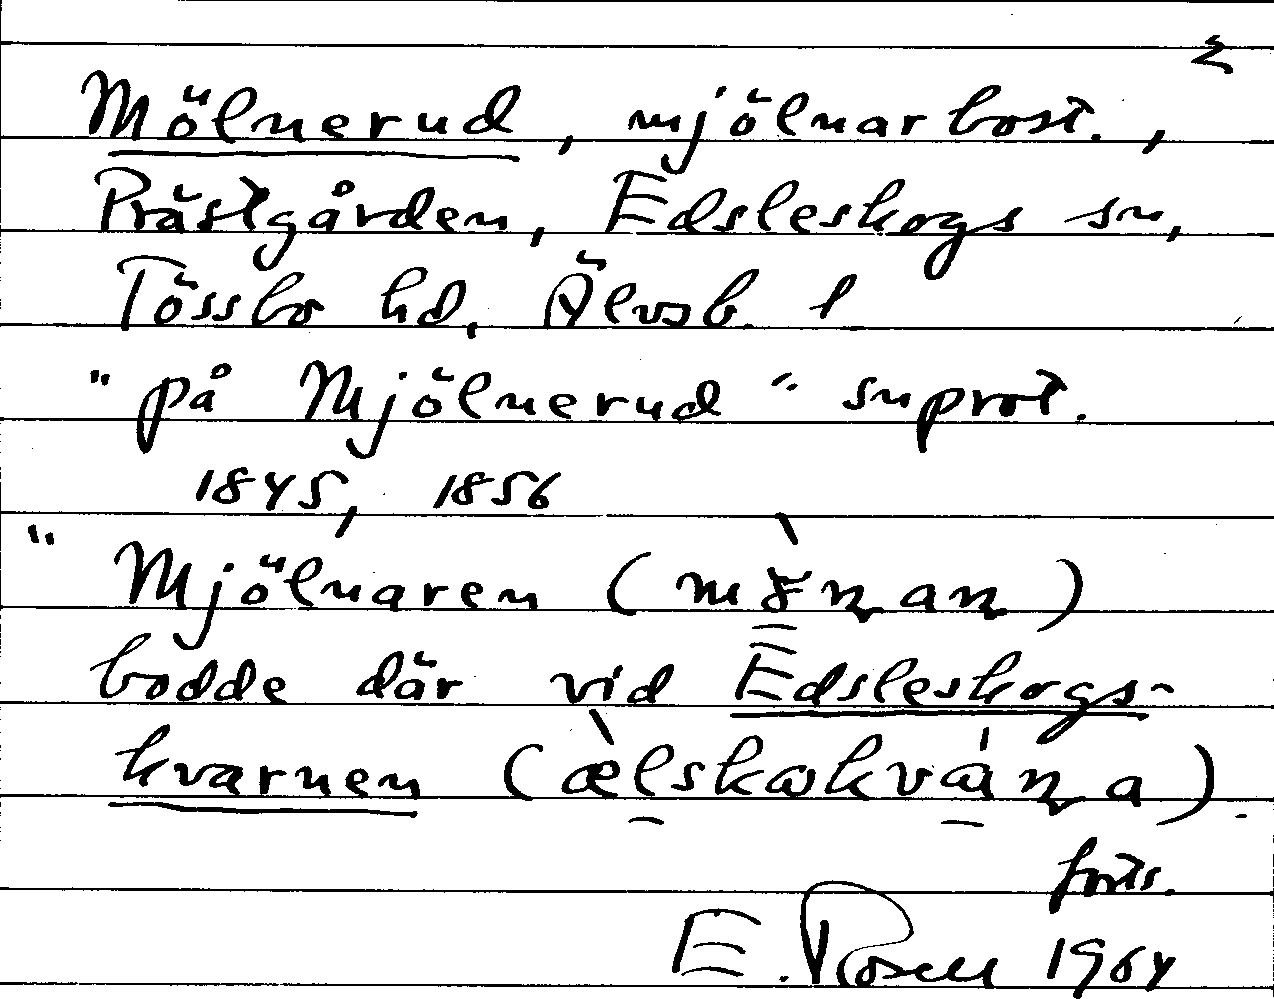 Mölnerud, mjölnarbost.,
Prästgården, Edsleskogs sn,
Tössbo hd, Älvsb. l
"på Mjölnerud" snprot.
1845, 1856
"Mjölnaren (
bodde där vid Edsleskogs-
kvarnen (
forts.
E. Rosell 1964